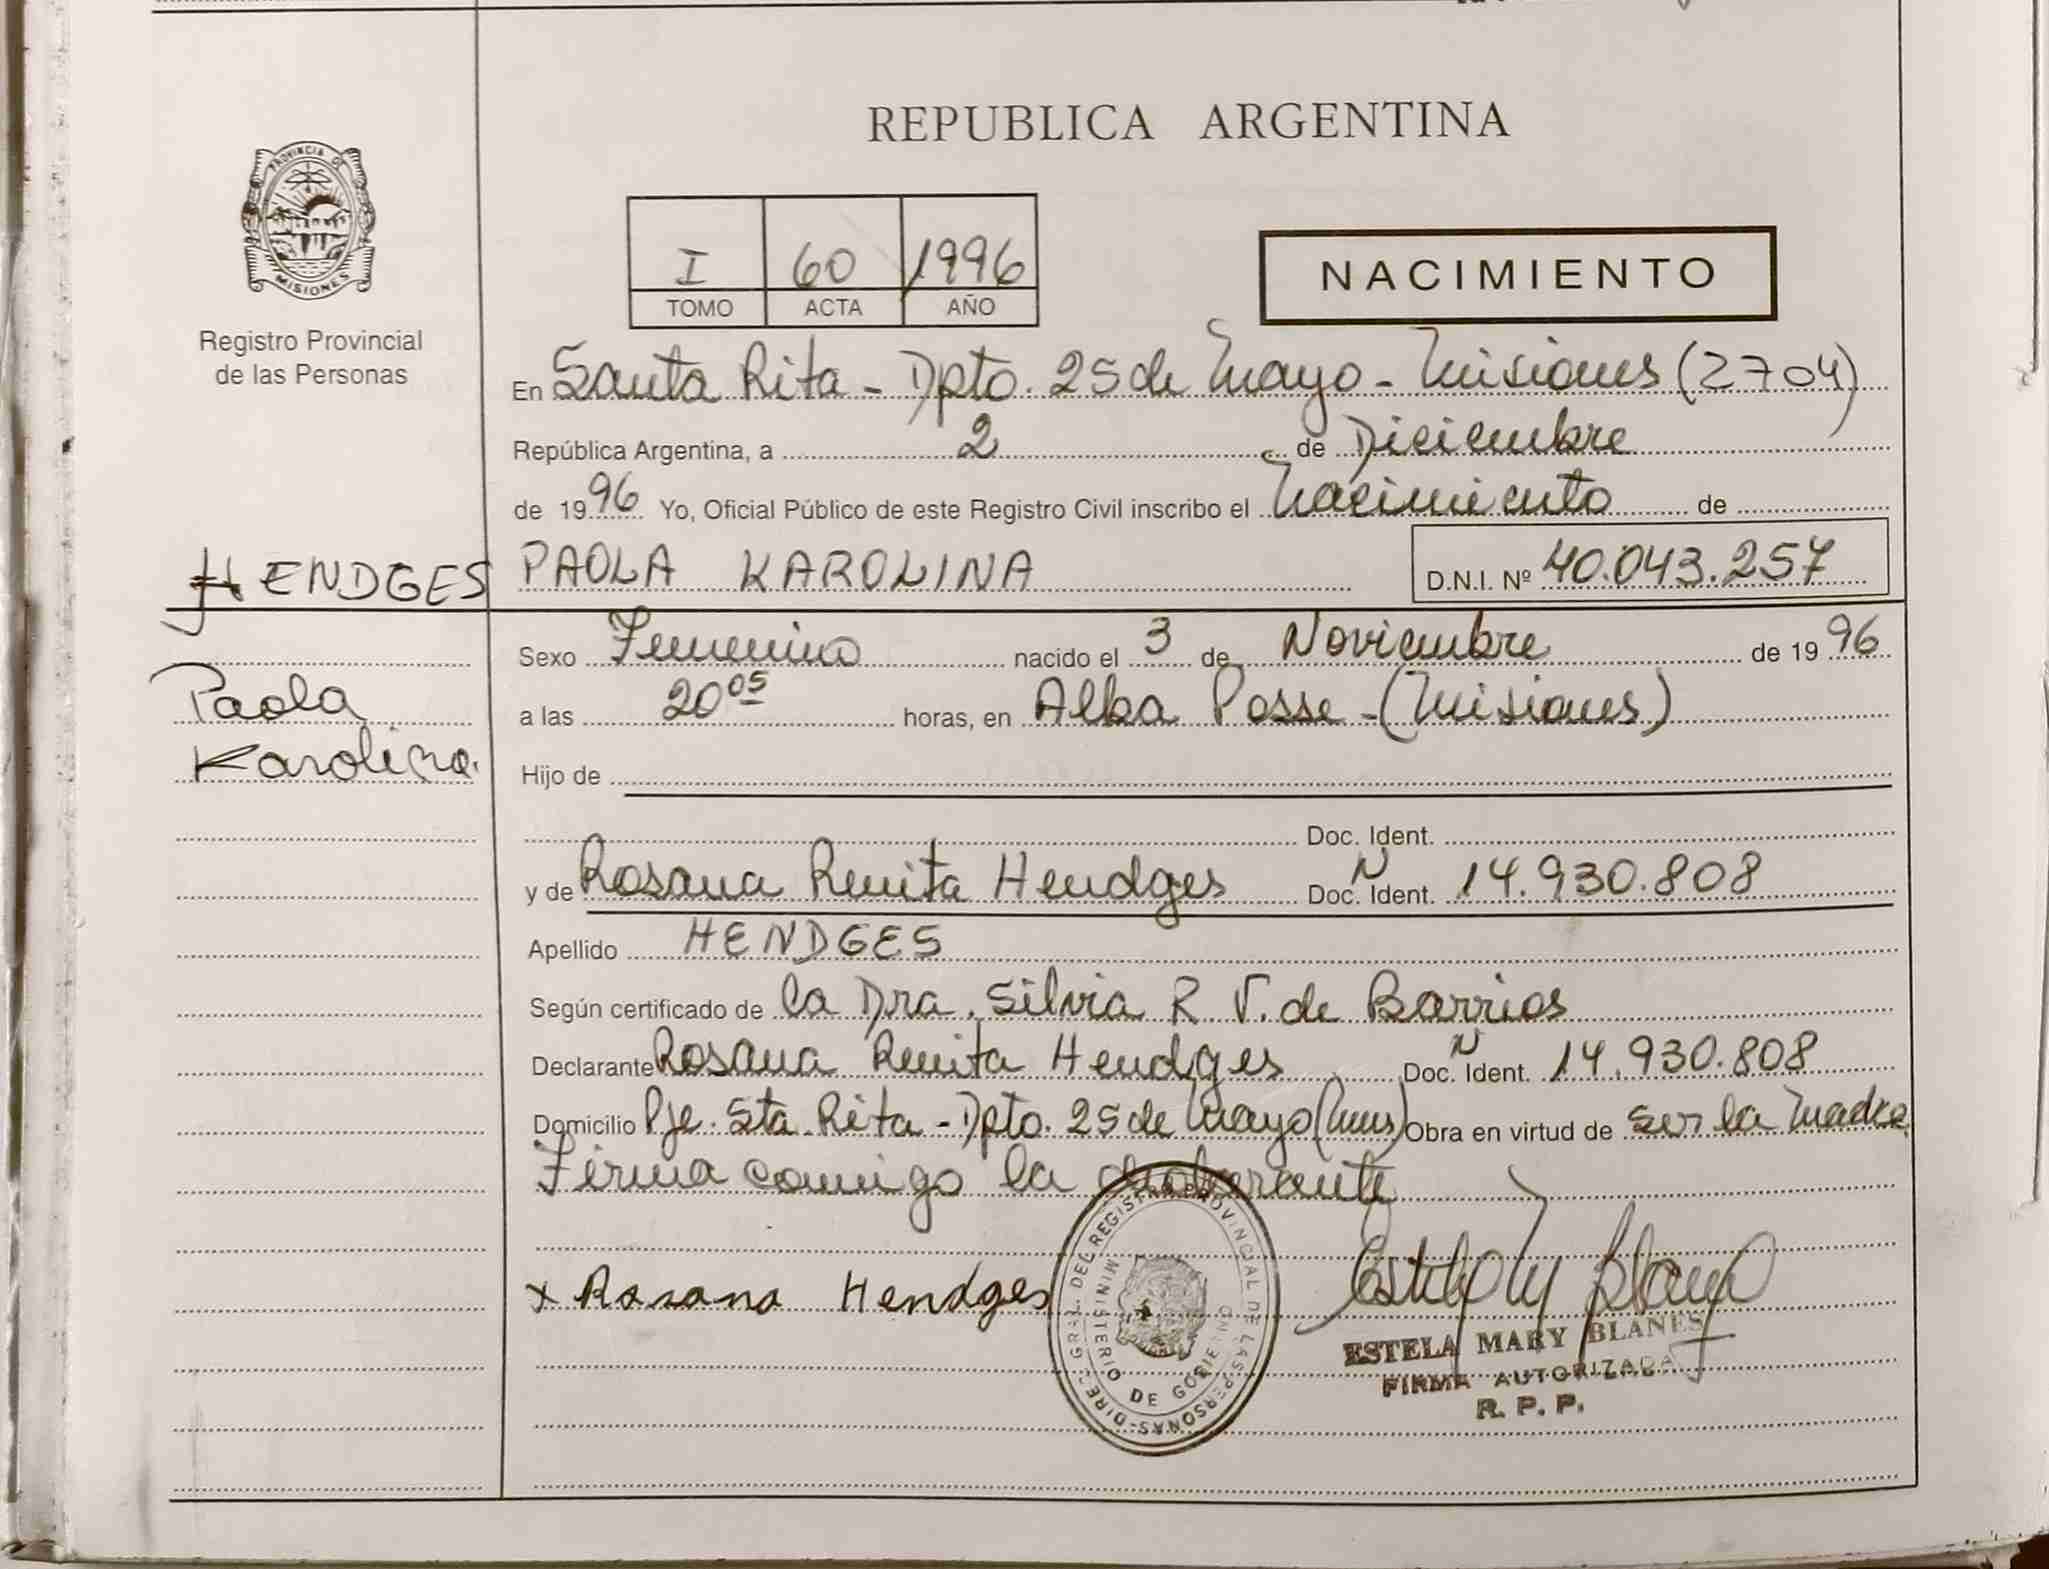 REPUBLICA ARGENTINA
PROVINCIA DE
MISIONES
Registro Provincial
de las Personas
I 60 1996
TOMO ACTA AÑO
NACIMIENTO
En Santa Rita - Dpto. 25 de Mayo - Misiones (2704)
República Argentina, a 2 de Diciembre
de 1996 Yo, Oficial Público de este Registro Civil inscribo el Nacimiento de
HENDGES PAOLA KAROLINA D.N.I. Nº 40.043.257
Sexo Femenino nacido el 3 de Noviembre de 1996
Paola
a las 20 05 horas, en Alba Posse - (Misiones)
Karolina.
Hijo de
Doc. Ident.
y de Rosana Renita Hendges Doc. N Ident. 14.930.808
Apellido HENDGES
Según certificado de la Dra. Silvia R V. de Barrios
Declarante Rosana Renita Hendges Doc. N Ident. 14.930.808
Domicilio Pje. Sta. Rita - Dpto. 25 de Mayo (Mnes) Obra en virtud de ser la Madre
Firma conmigo la declarante
x Rosana Hendges
DIREC. GRAL. DEL REGISTRO PROVINCIAL DE LAS PERSONAS
MINISTERIO DE GOBIERNO
ESTELA MARY BLANES
FIRMA AUTORIZADA
R. P. P.